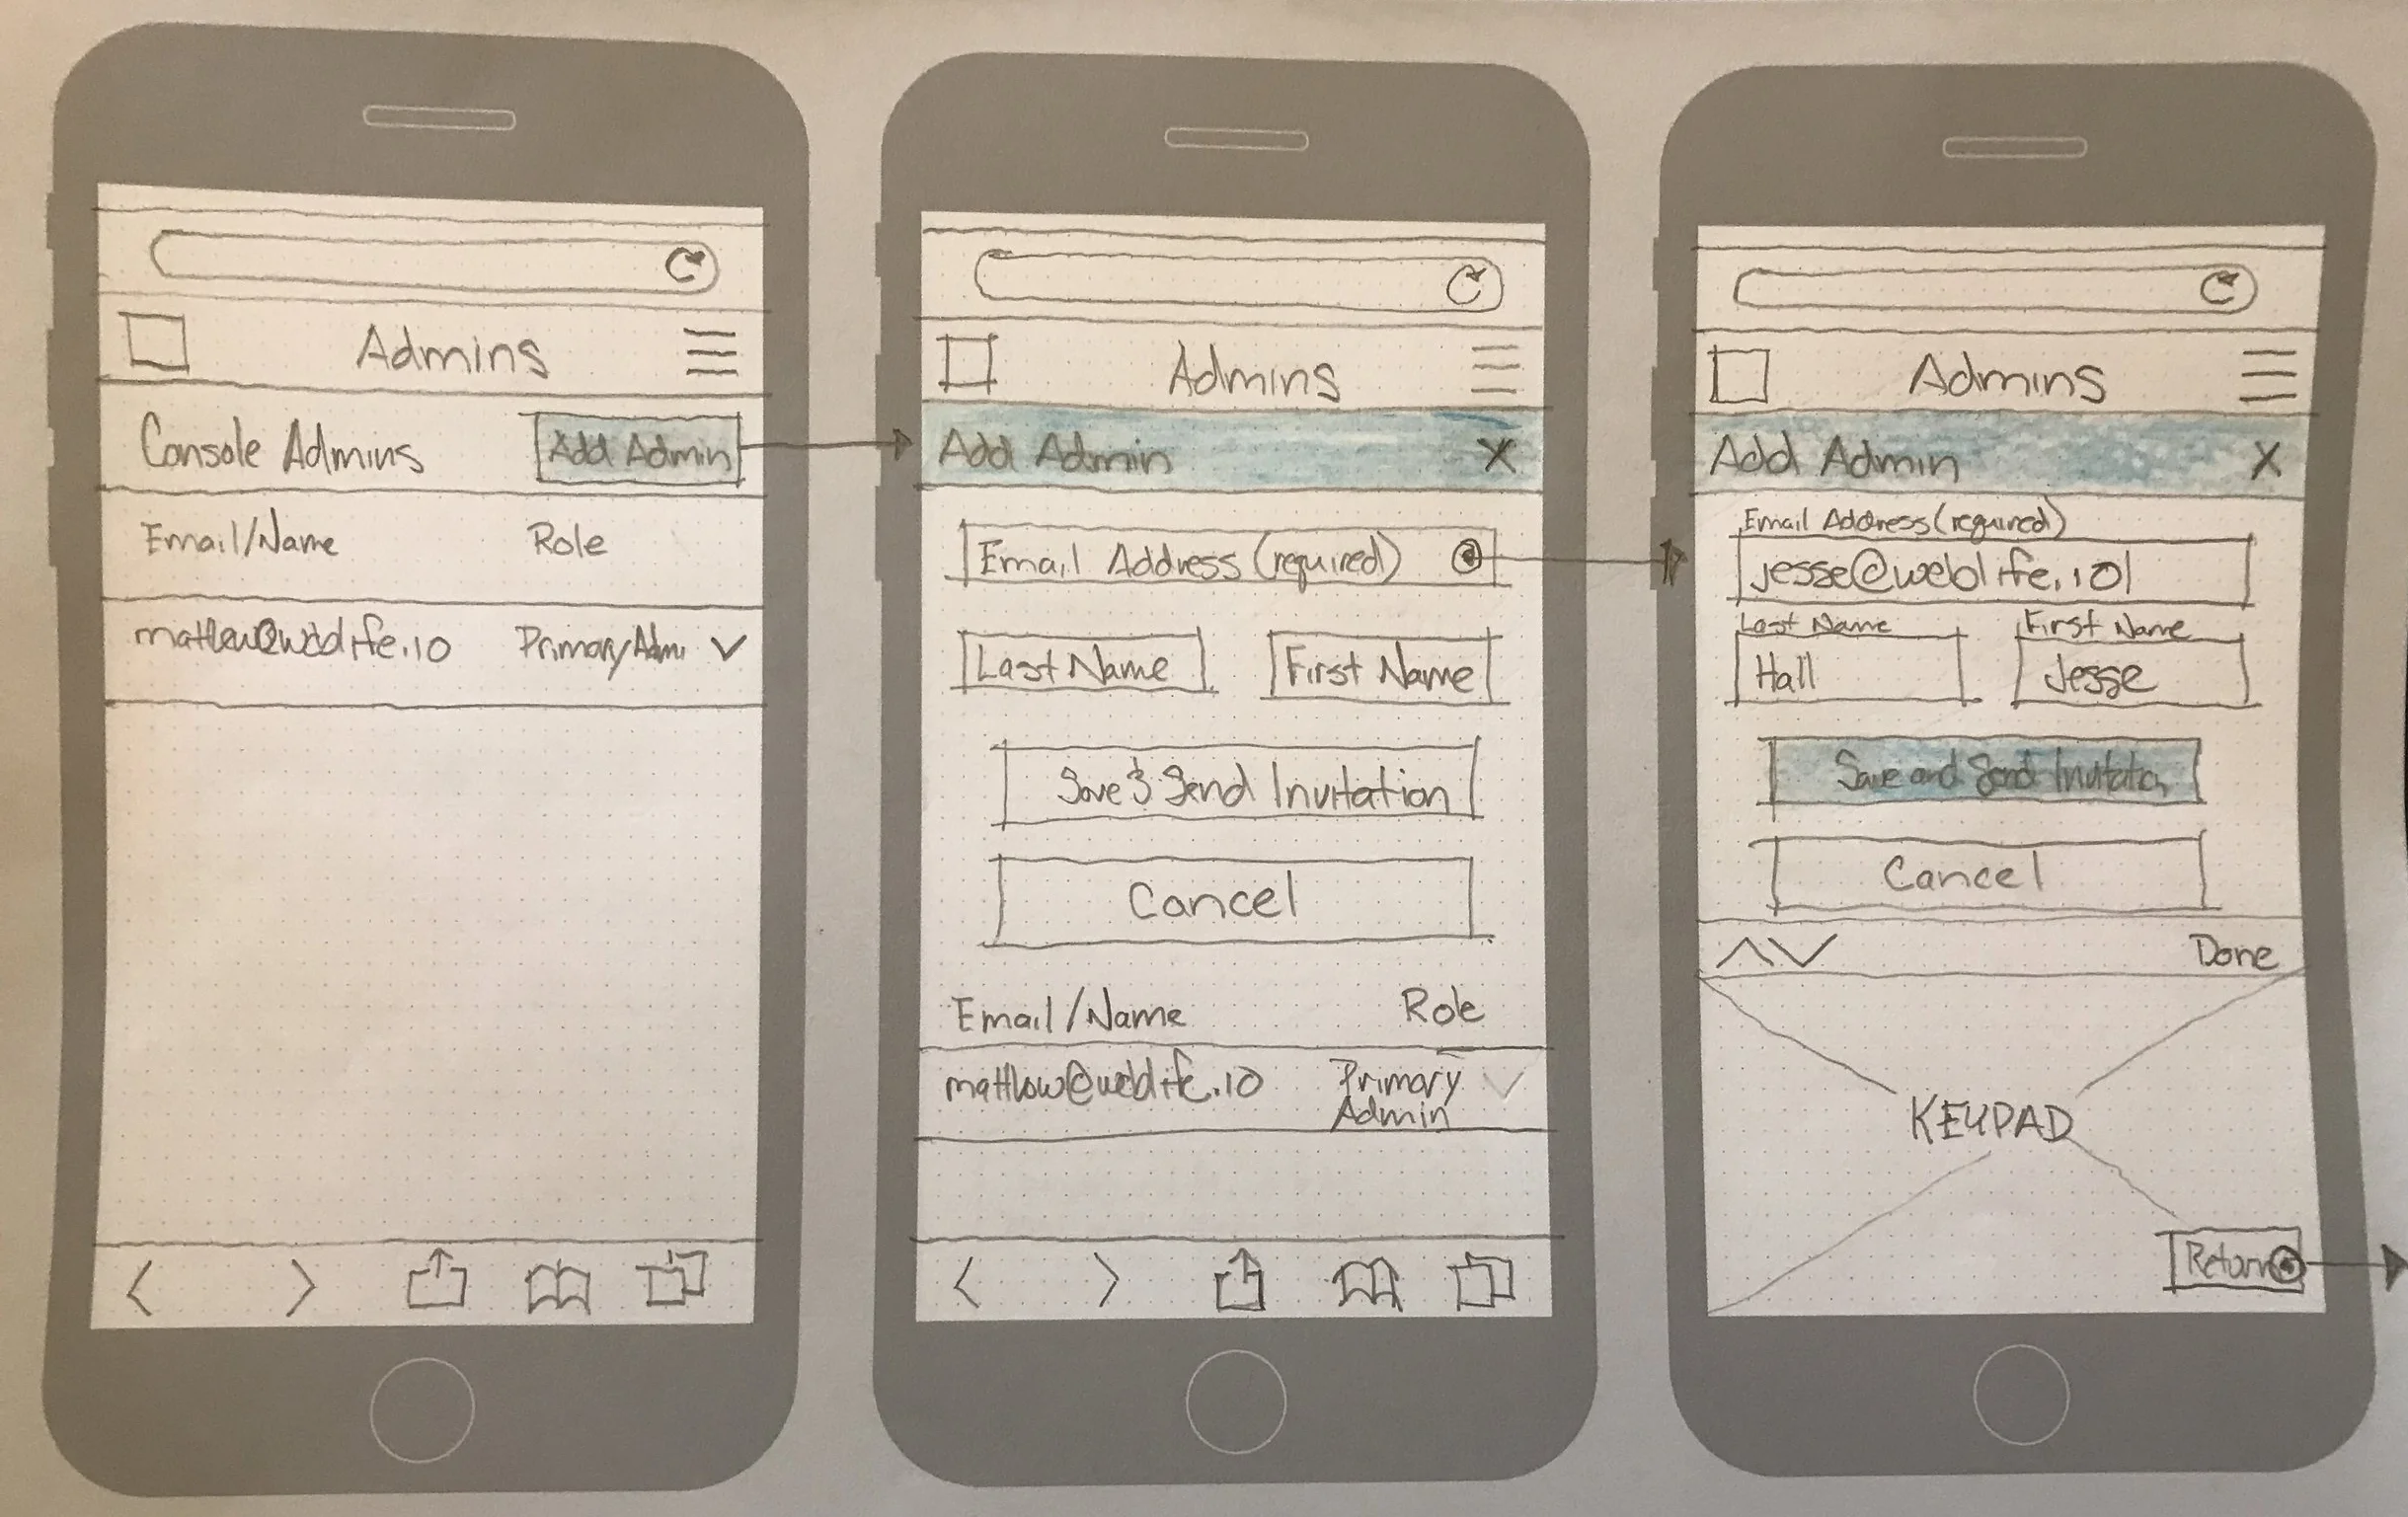 Admins
Console Admins
Add Admin
Email/Name
Role
mattlow@weblife.io
Primary Admi
Admins
Add Admin
X
Email Address (required)
Last Name
First Name
Save & Send Invitation
Cancel
Email/Name
Role
mattlow@weblife.io
Primary
Admin
Admins
Add Admin
X
Email Address (required)
jesse@weblife.io|
Last Name
First Name
Hall
Jesse
Save and Send Invitation
Cancel
Done
KEYPAD
Return